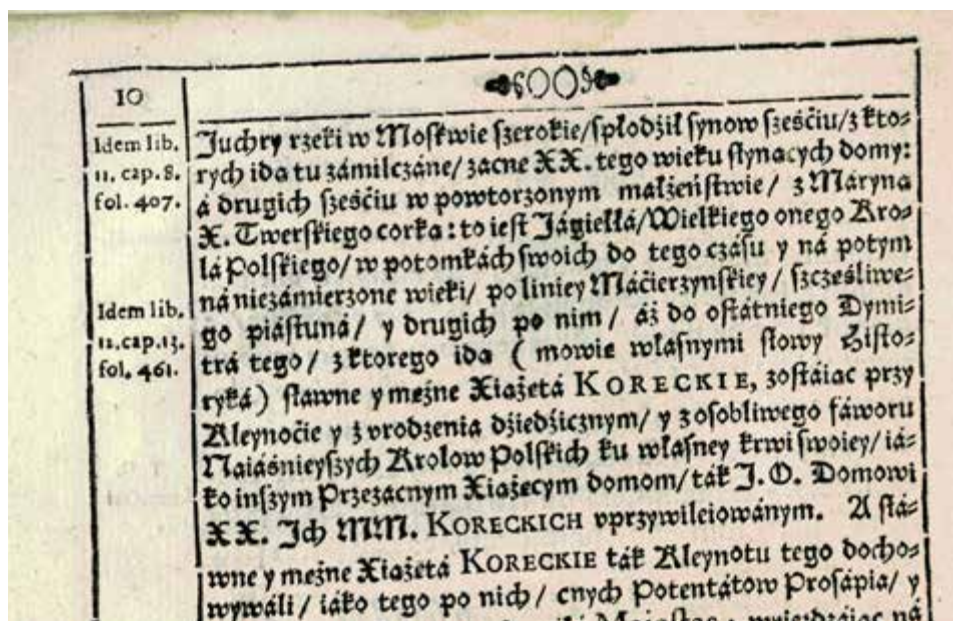 10
Idem lib.
11. cap. 8.
fol. 407.
Idem lib.
11. cap. 13.
fol. 461.
Juchry rzeki w Moſkwie ſzerokie/ ſpłodźił ſynow ſześćiu/ z kto⸗
rych ida tu zámilczáne/ zacne XX. tego wieku ſłynacych domy:
á drugich ſześćiu w powtorzonym małżeńſtwie/ z Máryna
X. Twerſkiego corka: to ieſt Jágiełłá/ Wielkiego onego Kro⸗
lá Polſkiego/ w potomkách ſwoich do tego czáſu y ná potym
ná niezámierzone wieki/ po liniey Máćierzynſkiey/ ſzcześliwe⸗
go piáſtuná/ y drugich po nim/ áż do oſtátniego Dymi⸗
trá tego/ z ktorego ida ( mowie właſnymi ſłowy Hiſto⸗
ryká) ſławne y meżne Xiażetá KORECKIE, zoſtáiac przy
Kleynoćie y z vrodzenia dźiedźicznym/ y z oſobliwego fáworu
Naiáśnieyſzych Krolow Polſkich ku właſney krwi ſwoiey/ iá⸗
ko inſzym Przezacnym Xiażecym domom/ ták J. O. Domowi
XX. Jch MM. KORECKICH vprzywileiowánym. A ſłá⸗
wne y meżne Xiażetá KORECKIE ták Kleynotu tego docho⸗
wywáli/ iáko tego po nich/ cnych Potentátow Proſápia/ y